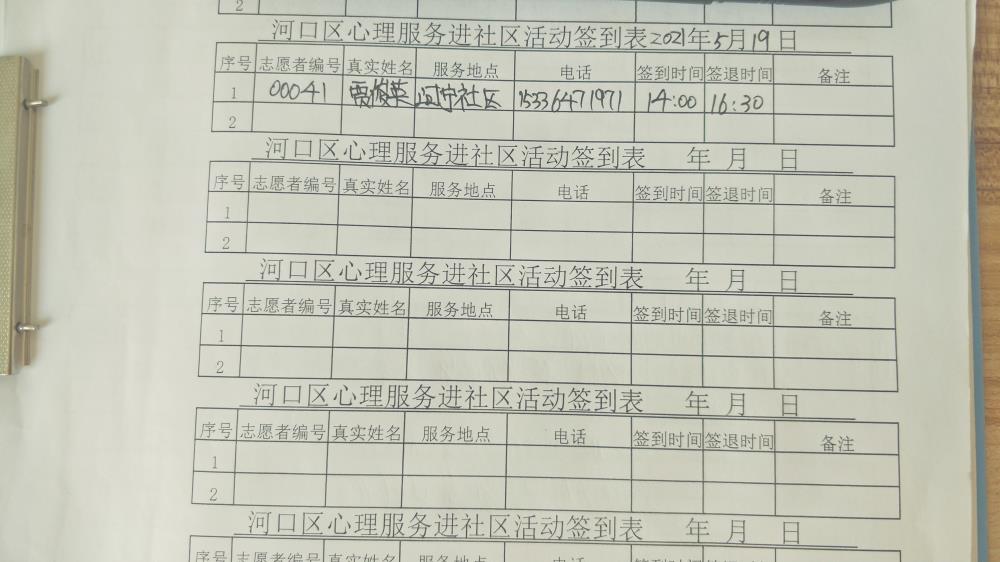 2
河口区心理服务进社区活动签到表2021年5月19日
序号 志愿者编号 真实姓名 服务地点 电话 签到时间 签退时间 备注
1 00041 贾俊英 社区 15336471971 14:00 16:30
2
河口区心理服务进社区活动签到表 年 月 日
序号 志愿者编号 真实姓名 服务地点 电话 签到时间 签退时间 备注
1
2
河口区心理服务进社区活动签到表 年 月 日
序号 志愿者编号 真实姓名 服务地点 电话 签到时间 签退时间 备注
1
2
河口区心理服务进社区活动签到表 年 月 日
序号 志愿者编号 真实姓名 服务地点 电话 签到时间 签退时间 备注
1
2
河口区心理服务进社区活动签到表 年 月 日
序号 志愿者编号 真实姓名 服务地点 电话 签到时间 签退时间 备注